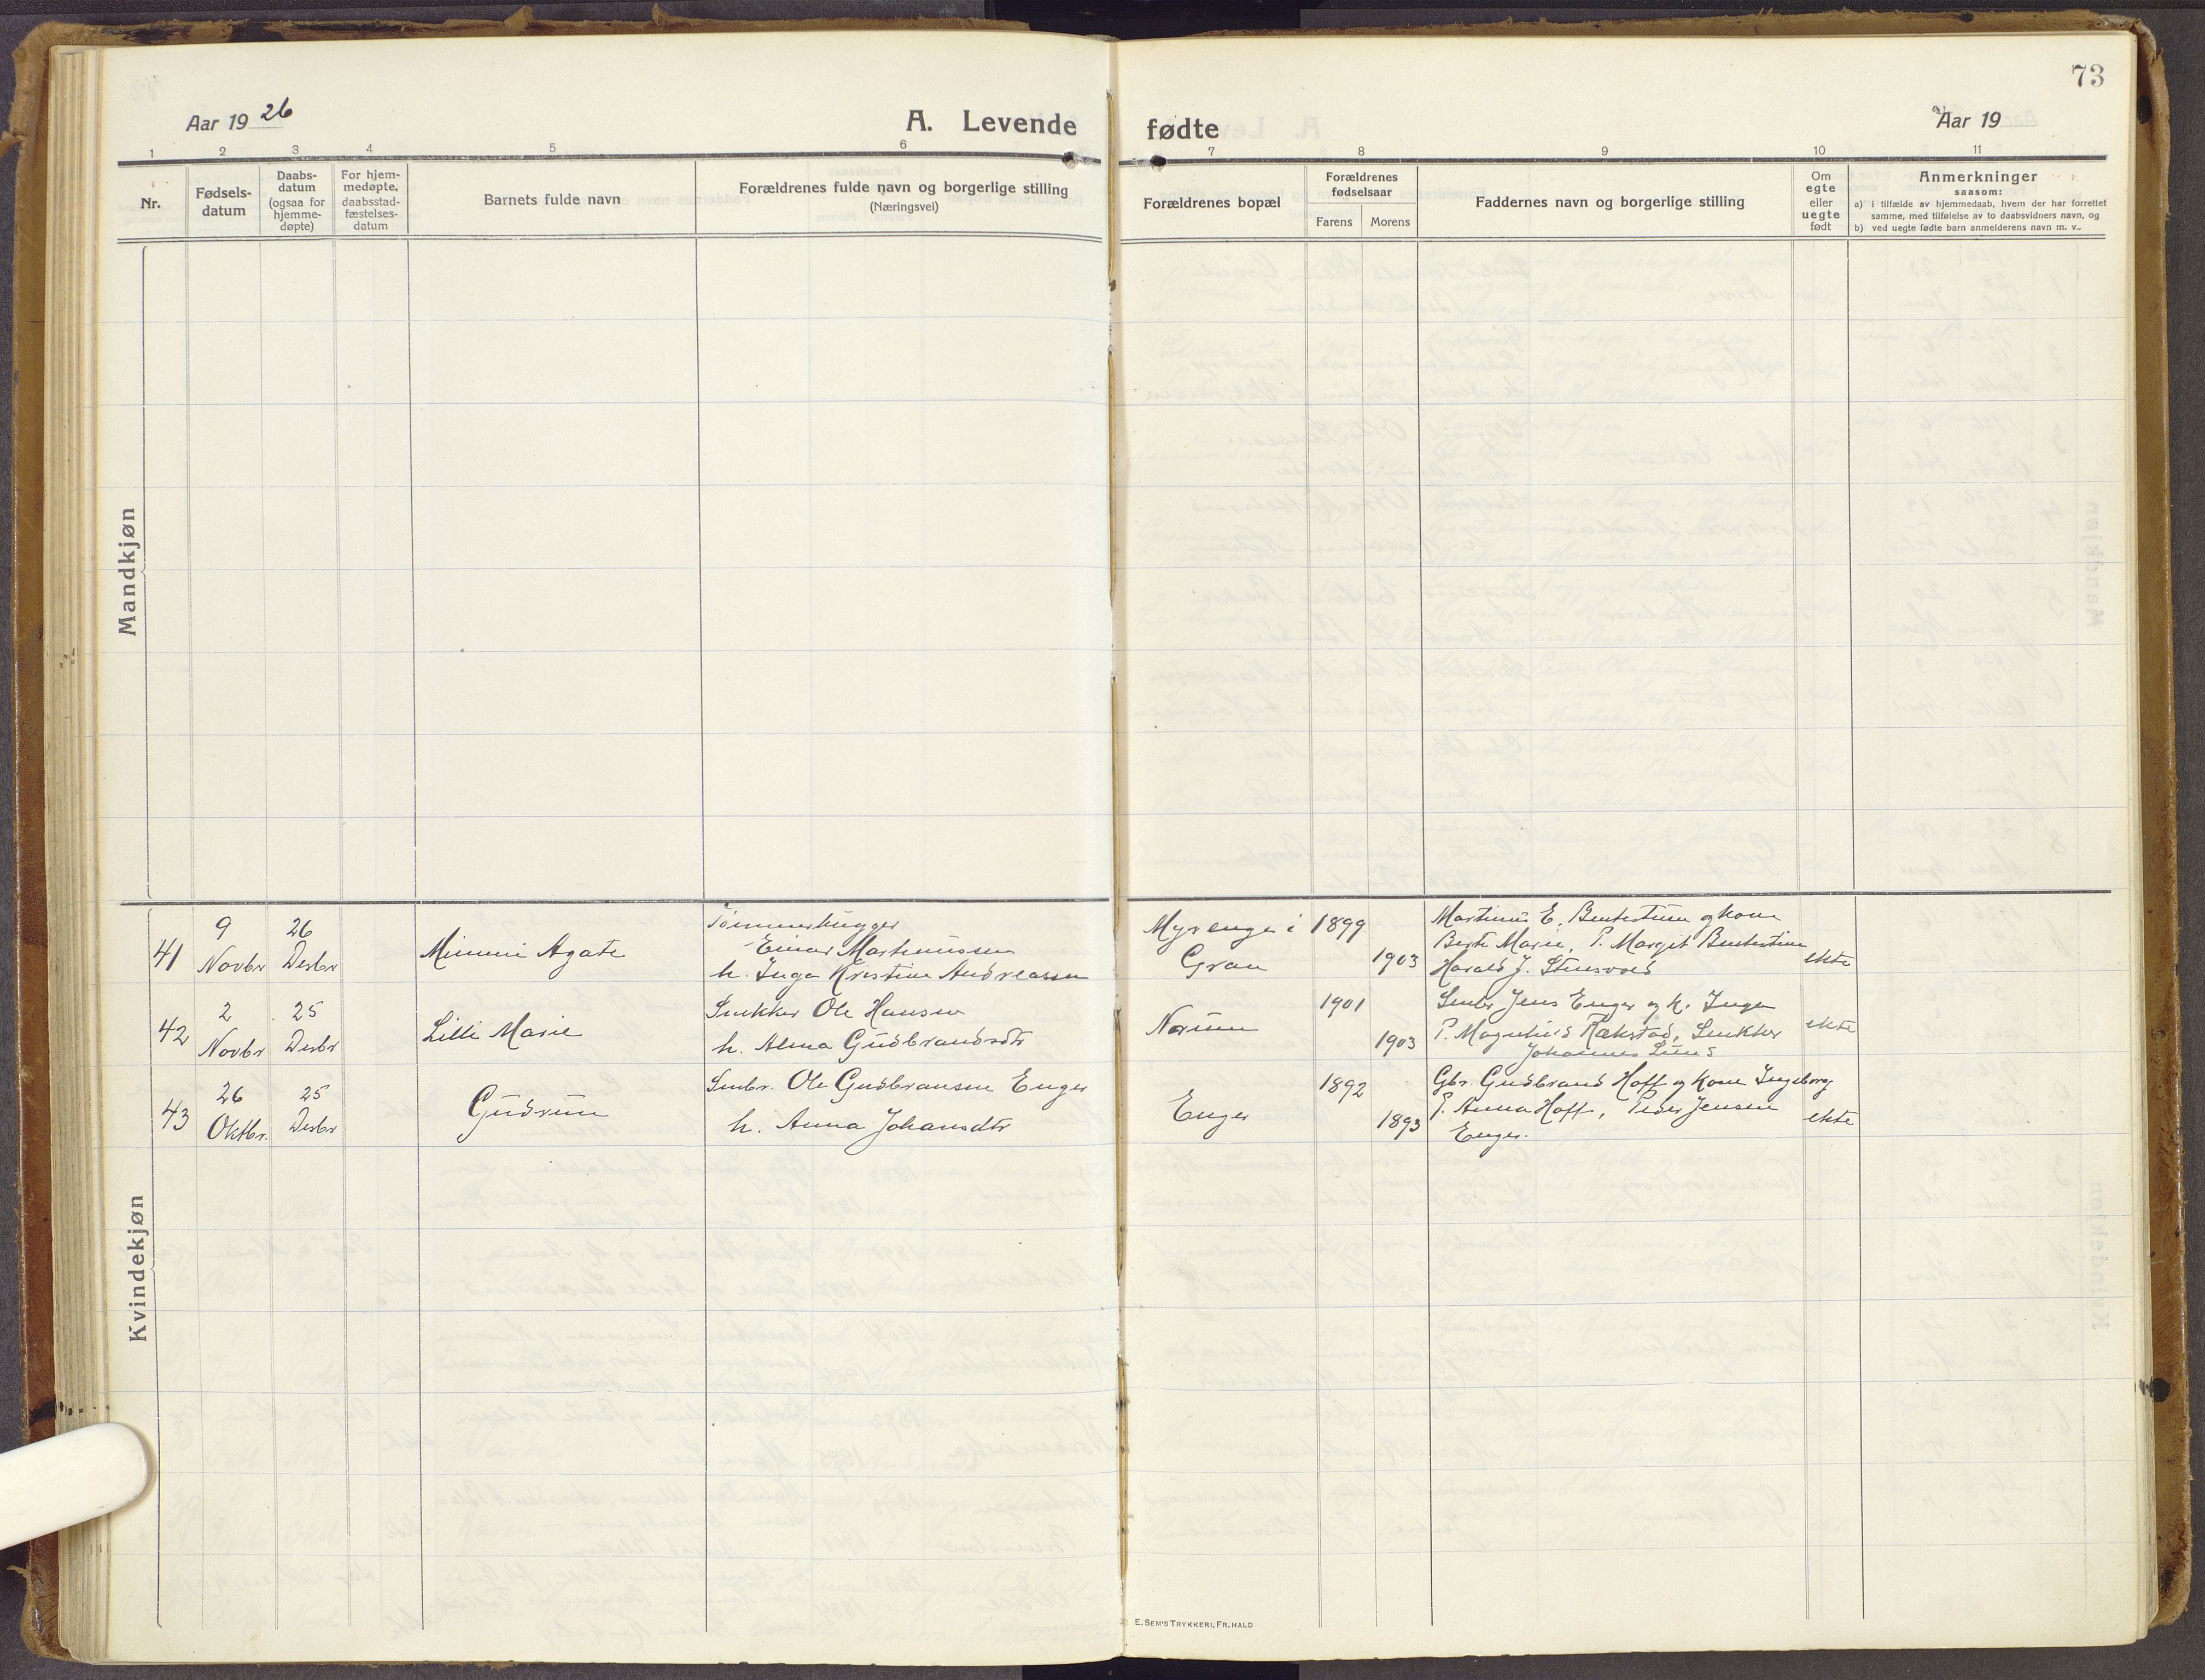 73
Aar 19 26
A. Levende fødte
Aar 19
1 2 3 4 5 6 7 8 9 10 11
Nr.
Fødsels-
datum
Daabs-
datum
(ogsaa for
hjemme-
døpte)
For hjem-
medøpte,
daabsstad-
fæstelses-
datum
Barnets fulde navn
Forældrenes fulde navn og borgerlige stilling
(Næringsvei)
Forældrenes bopæl
Forældrenes
fødselsaar
Farens Morens
Faddernes navn og borgerlige stilling
Om
egte
eller
uegte
født
Anmerkninger
saasom:
a) i tilfælde av hjemmedaab, hvem der har forrettet
samme, med tilføielse av to daabsvidners navn, og
b) ved uegte fødte barn anmelderens navn m. v..
Mandkjøn
Kvindekjøn
41
9
Novbr
26
Desbr
Mimmi Agate
Tømmerhugger
Einar Martinussen
h. Inga Kristine Andreassen
Myrenge i
Gran
1899
1903
Martinus E. Bentestuen og kone
Berte Marie, P. Margit Bentestuen
Harald J. Stensvold
ekte
42
2
Novbr
25
Desbr
Lilli Marie
Snekker Ole Hansen
h. Alma Gudbrandsdtr
Norum
1901
1903
Smbr Jens Enger og k. Inga
P. Magnhild Rækstad, Snekker
Johannes Lund
ekte
43
26
Oktbr.
25
Desbr
Gudrun
Smbr. Ole Gudbransen Enger
h. Anna Johansdtr
Enger
1892
1893
Gbr. Gudbrand Hoff og Kone Ingeborg
P. Anna Hoff, Peder Jensen
Enger.
ekte
E. SEM'S TRYKKERI, FR. HALD